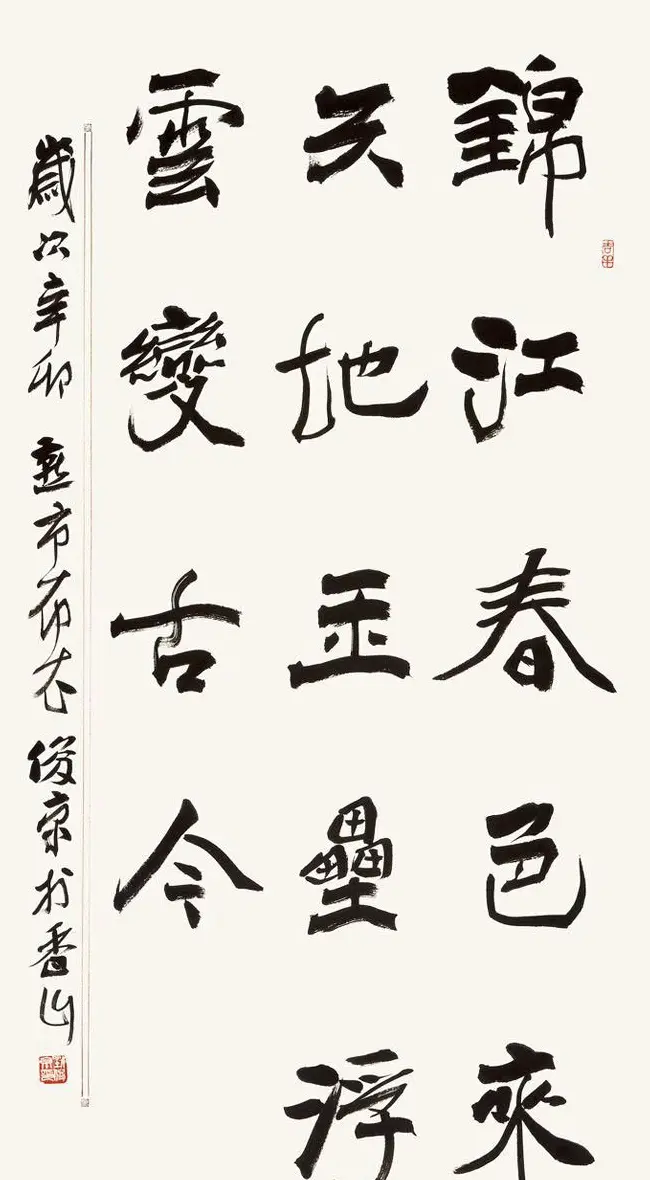 錦江春色來
天地玉壘浮
雲變古今
歲次辛卯 燕市布衣 俊京於香山